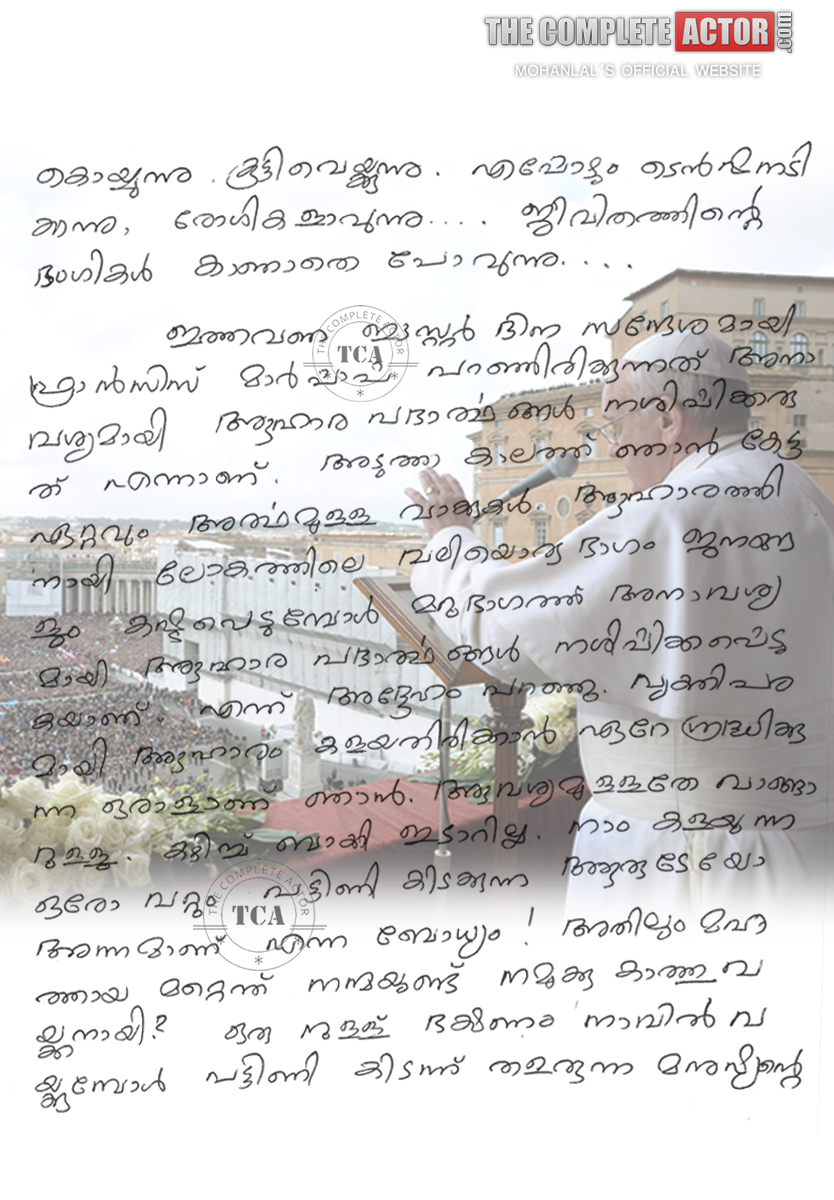 THE COMPLETE ACTOR .com
MOHANLAL'S OFFICIAL WEBSITE
കൊയ്യുന്നു. കൂട്ടിവെയ്ക്കുന്നു. എപ്പോഴും ടെൻഷനടി
ക്കുന്നു, രോഗികളാവുന്നു.... ജീവിതത്തിന്റെ
ഭംഗികൾ കാണാതെ പോവുന്നു....
ഇത്തവണ ഈസ്റ്റർ ദിന സന്ദേശമായി
ഫ്രാൻസിസ് മാർപ്പാപ്പ പറഞ്ഞിരിക്കുന്നത് അനാ
വശ്യമായി ആഹാര പദാർത്ഥങ്ങൾ നശിപ്പിക്കരു
ത് എന്നാണ്. അടുത്ത കാലത്ത് ഞാൻ കേട്ട
ഏറ്റവും അർത്ഥമുള്ള വാക്കുകൾ. ആഹാരത്തി
നായി ലോകത്തിലെ വലിയൊരു ഭാഗം ജനങ്ങ
ളും കഷ്ടപ്പെടുമ്പോൾ മറുഭാഗത്ത് അനാവശ്യ
മായി ആഹാര പദാർത്ഥങ്ങൾ നശിപ്പിക്കപ്പെടു
കയാണ്. എന്ന് അദ്ദേഹം പറഞ്ഞു. വ്യക്തിപര
മായി ആഹാരം കളയാതിരിക്കാൻ ഏറെ ശ്രദ്ധിക്കു
ന്ന ഒരാളാണ് ഞാൻ. ആവശ്യമുള്ളതേ വാങ്ങാ
റുള്ളൂ. കഴിച്ച് ബാക്കി ഇടാറില്ല. നാം കളയുന്ന
ഒരോ വറ്റും പട്ടിണി കിടക്കുന്ന ആരുടേയോ
അന്നമാണ് എന്ന ബോധ്യം! അതിലും മഹ
ത്തായ മറ്റെന്ത് നന്മയുണ്ട് നമുക്കു കാത്തുവ
യ്ക്കാനായി? ഒരു നുള്ള് ഭക്ഷണം നാവിൽ വ
യ്ക്കുമ്പോൾ പട്ടിണി കിടന്ന് തളരുന്ന മനുഷ്യന്റെ
THE COMPLETE ACTOR
TCA
THE COMPLETE ACTOR
TCA